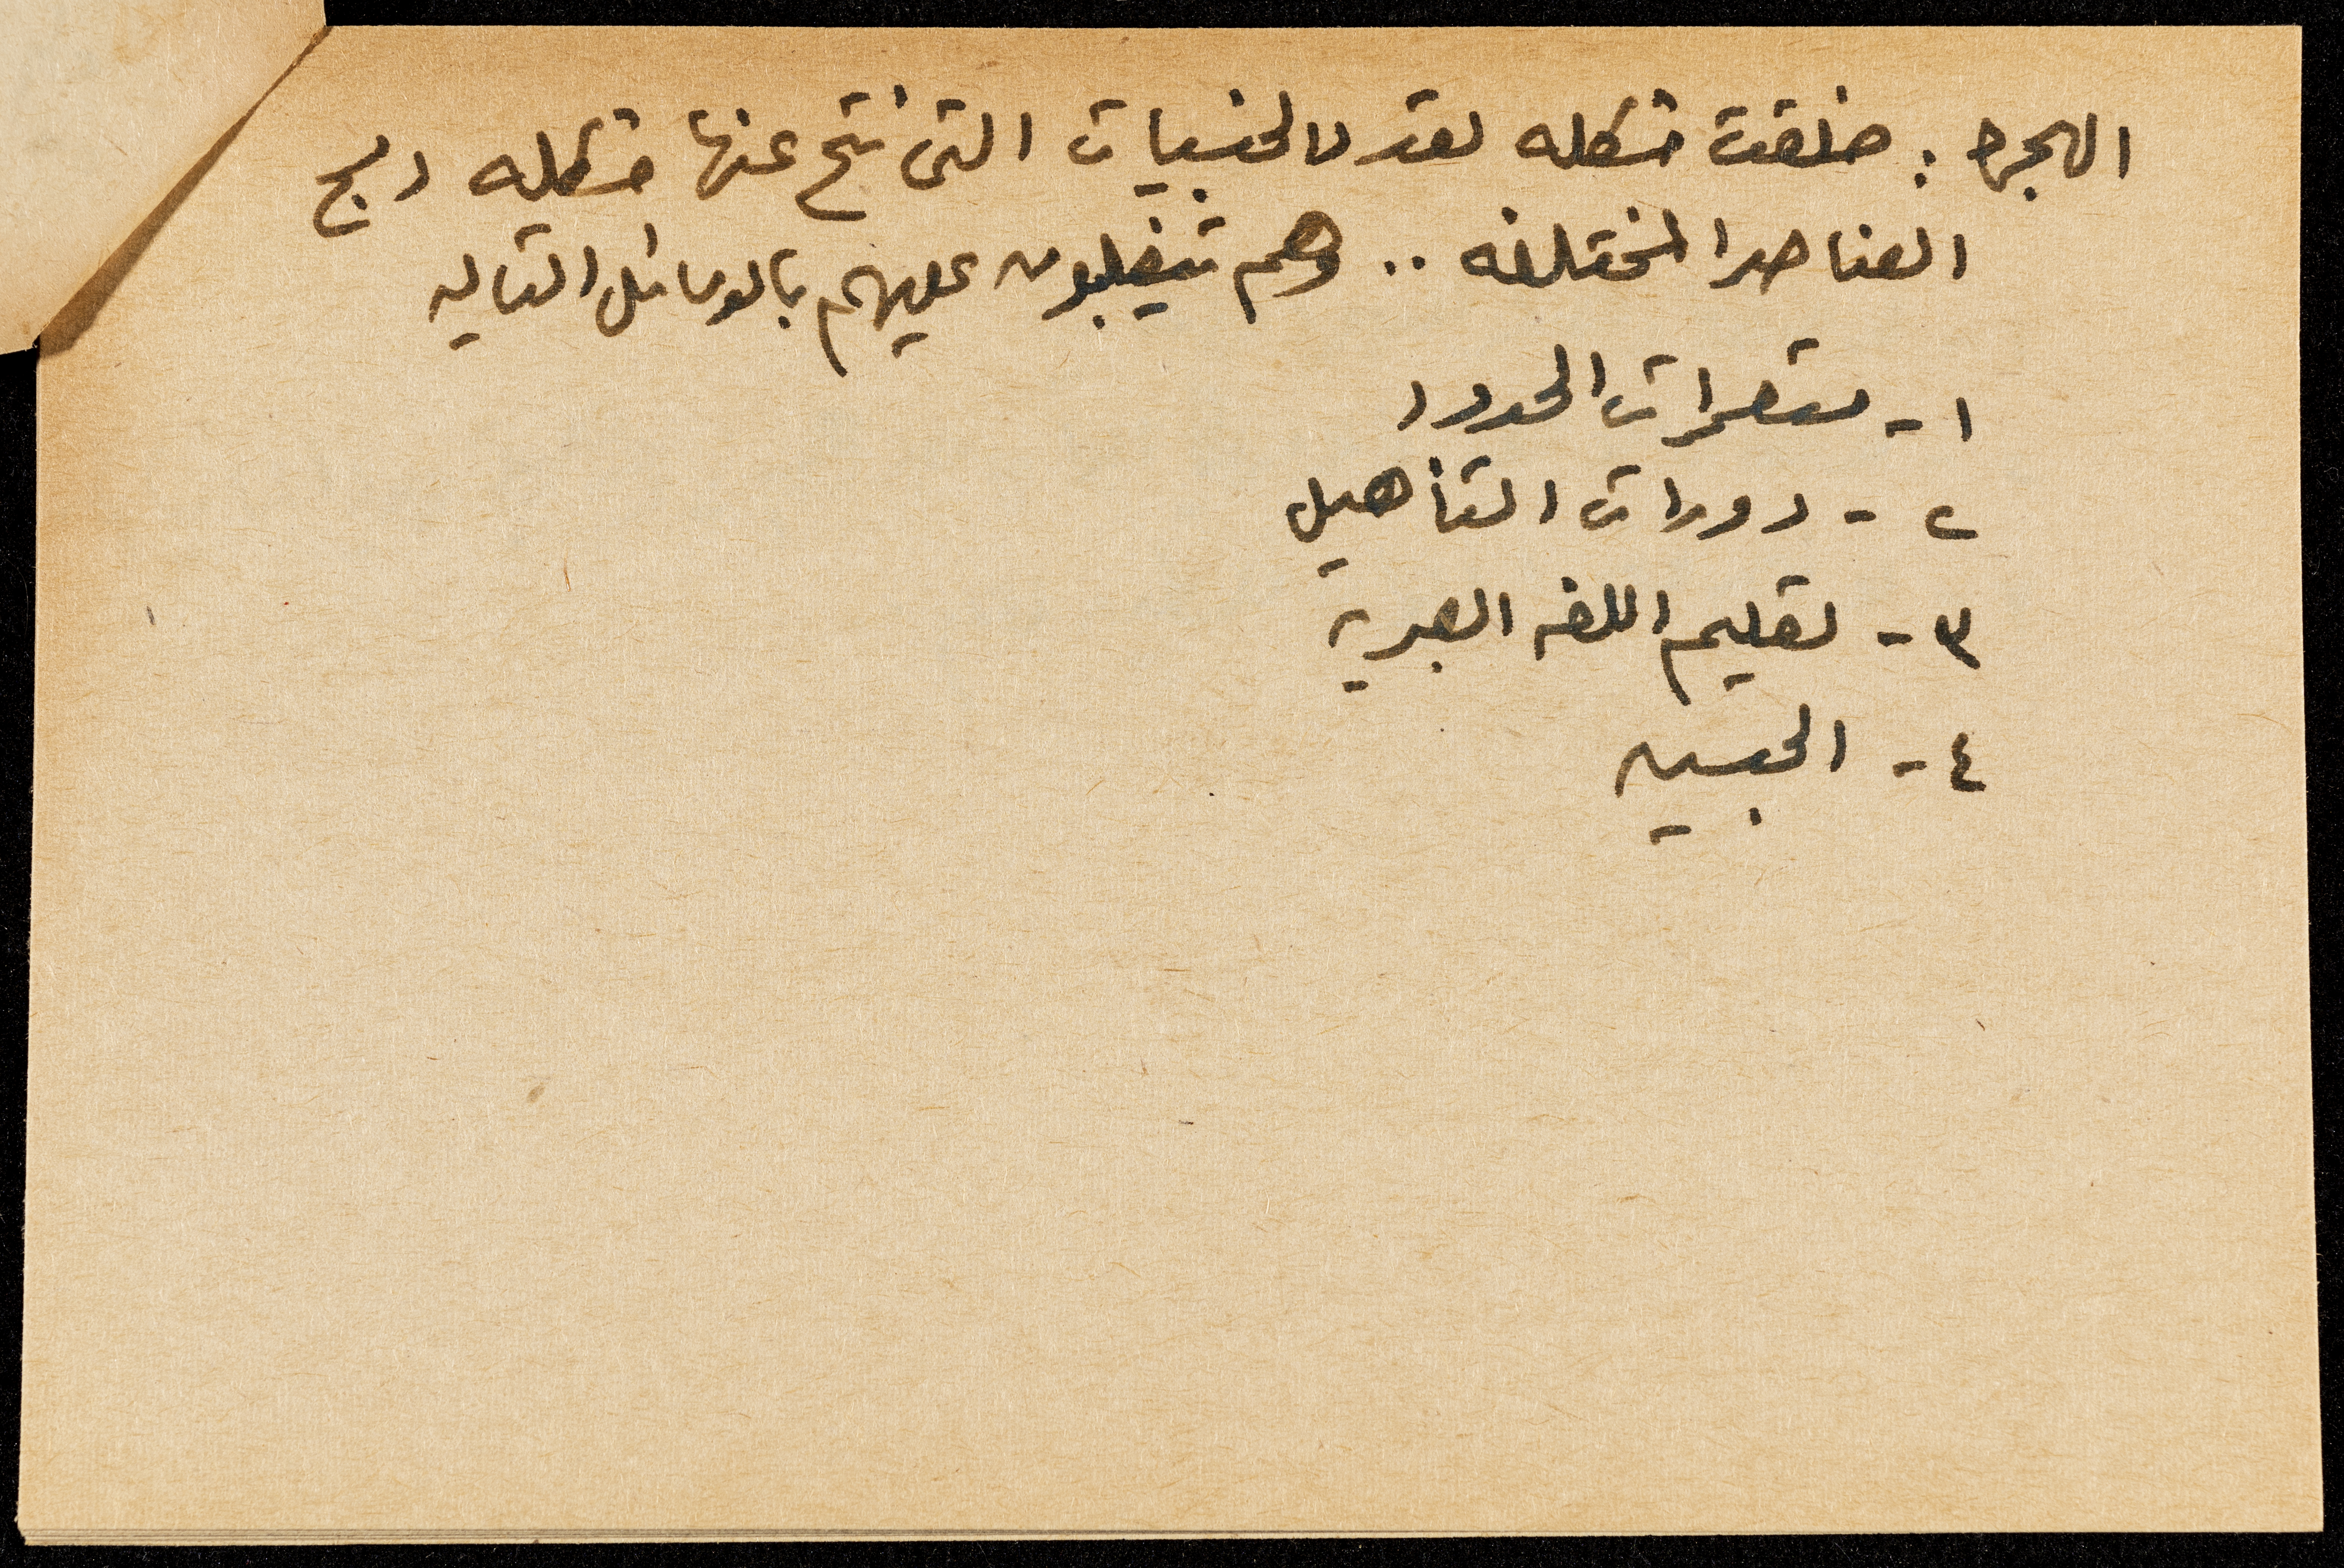 الهجره : خلقت مشكله تعدد الجنسيات التى نتج عنها مشكله دمج
العناصر المختلفه .. وهم يتغلبون عليهم بالوسائل التاليه
١ - مستعمرات الحدود
٢ - دورات التأهيل
٣ - تعليم اللغه العبريه
٤ - الجيش